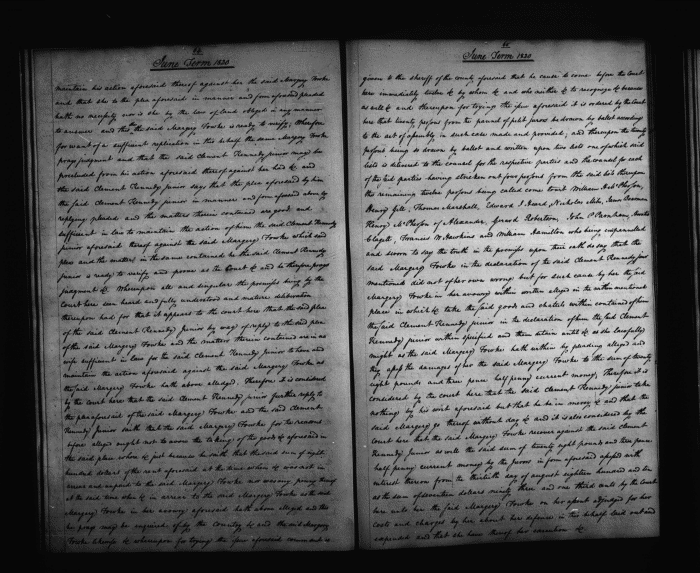 June Term 1820
maintain his action aforesaid thereof against her the said Margery Fowke
and that she to the plea aforesaid in manner and form aforesaid pleaded
hath no necessity nor is she by the law of land obliged in any manner
to answer and this the said Margery Fowke is ready to verify; Wherefore
for want of a sufficient replication in this behalf the same Margery Fowke
prays judgment and that the said Clement Kennedy junior may be
precluded from his action aforesaid thereof against her had &c and
the said Clement Kennedy junior says that the plea aforesaid by him
the said Clement Kennedy junior in manner and form aforesaid above by
replying pleaded and the matters therein contained are good and
sufficient in law to maintain the action of him the said Clement Kennedy
junior aforesaid thereof against the said Margery Fowke which said
plea and the matters in the same contained he the said Clement Kennedy
junior is ready to verify and prove as the Court &c and he therefore prays
judgment &c Whereupon all and singular the premises being by the
Court here seen heard and fully understood and mature deliberation
thereupon had for that it appears to the court here that the said plea
of the said Clement Kennedy junior by way of reply to the said plea
of the said Margery Fowke and the matters therein contained are in no
wise sufficient in law for the said Clement Kennedy junior to have and
maintain the action aforesaid against the said Margery Fowke as
the said Margery Fowke hath above alledged, Therefore it is considered
by the court here that the said Clement Kennedy junior further reply to
the plea aforesaid of the said Margery Fowke and the said Clement
Kennedy junior saith that the said Margery Fowke for the reasons
before alleged ought not to avow the taking of the goods &c aforesaid in
the said place when &c just because he saith that the said sum of eight
hundred dollars of the rent aforesaid at the time when &c was not in
arrear and unpaid to the said Margery Fowke nor was any penny thereof
at the said time when &c in arrear to the said Margery Fowke as the said
Margery Fowke in her avowry aforesaid hath above alleged and this
he prays may be enquired of by the Country &c and the said Margery
Fowke likewise &c whereupon for trying the issue aforesaid command is
June Term 1820
given to the sheriff of the county aforesaid that he cause to come before the Court
here immediately twelve &c by whom &c and who neither &c to recognize &c because
as well &c and thereupon for trying the issue aforesaid it is ordered by the Court
here that twenty persons from the pannel of petit jurors be drawn by ballot according
to the act of assembly in such case made and provided; and thereupon the twenty
persons being so drawn by ballot and written upon two lists one of which said
lists is delivered to the counsel for the respective parties and the counsel for each
of the said parties having stricken out four persons from the said lists thereupon
the remaining twelve persons being called come to wit William H. McPherson,
Henry Gill, Thomas Marshall, Edward J. Heard, Nicholas
Henry McPherson of Alexander, Gerard Robertson, John P.
Francis W. Hawkins and William Hamilton who being empannelled
and sworn to say the truth in the premises upon their oath do say that the
said Margery Fowke in the declaration of the said Clement Kennedy junr
mentioned did not of her own wrong but for such cause by her the said
Margery Fowke in her avowry within written alleged in the within mentioned
place in which &c take the said goods and chatels within contained of him
the said Clement Kennedy junior in the declaration of him the said Clement
Kennedy junior within specified and them detain until &c as she lawfully
might as the said Margery Fowke hath within by pleading alleged and
they assess the damages of her the said Margery Fowke to the sum of twenty
eight pounds and three pence half penny current money, Therefore it is
considered by the court here that the said Clement Kennedy junior take
nothing by his writ aforesaid but that he be in mercy &c and that the
said Margery go thereof without day &c and it is also considered by the
court here that the said Margery Fowke recover against the said Clement
Kennedy Junior as well the said sum of twenty eight pounds and three pence
half penny current money by the jurors in form aforesaid assessed with
interest thereon from the thirtieth day of august eighteen hundred and ten
as the sum of seventeen dollars ninety three and one third cents by the Court
here unto her the said Margery Fowke on her assent adjudged for her
costs and charges by her about her defence in this behalf laid out and
expended and that she have thereof her execution &c